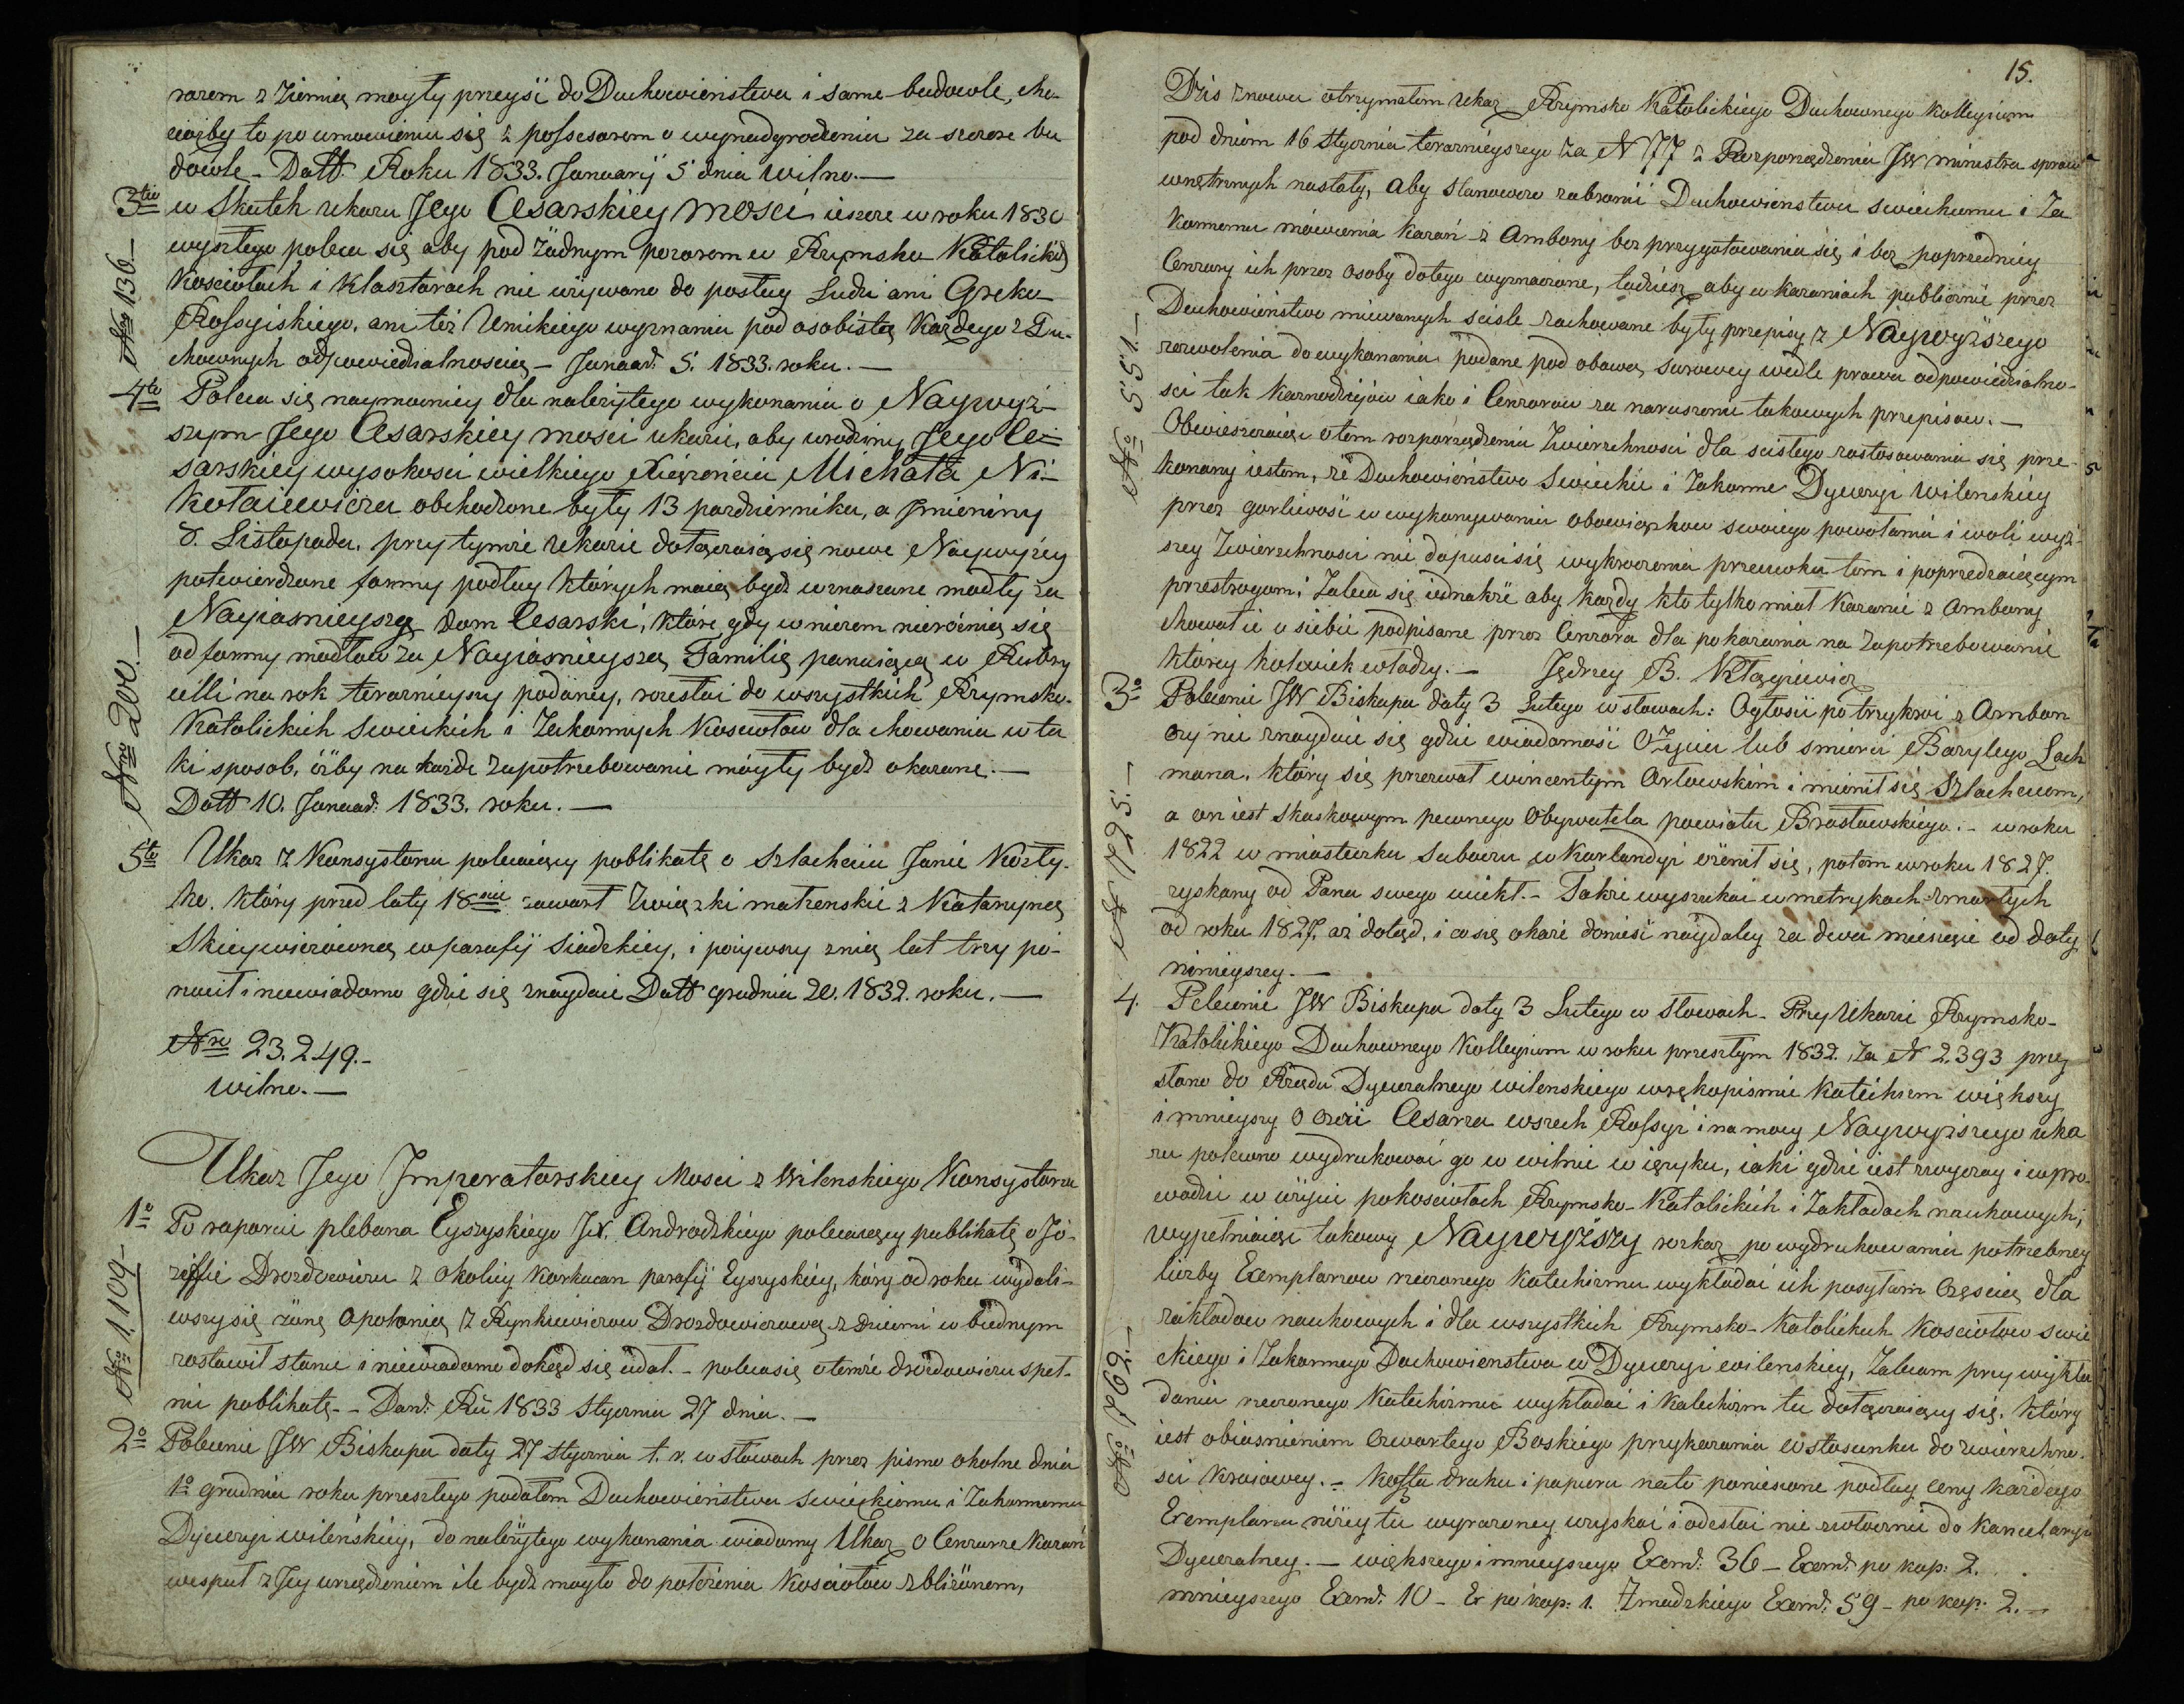 razem z Ziemią mogły przeyść do Duchowieństwa i same budowle, cho-
ciażby to po umowieniu się z possesorem o wynadgrodzeniu za szczere bu
dowle. Datt. Roku 1833. Januarÿ 5 dnia Wilno.—
3tio w Skutek ukazu Jego Cesarskiey Mości ieszcze w roku 1830
Nro 136.—
wyszłego poleca się aby pod żadnym pozorem w Rzymsko Katolickich
Kościołach i Klasztorach nie używano do posług Ludzi ani Greko-
Rossyiskiego, ani też Unickiego wyznania pod osobistą każdego z Du-
chownych odpowiedzialnością — Januar. 5. 1833. roku.—
4to Poleca się naymocniey dla należytego wykonania o Naywyż-
szym Jego Cesarskiey mości ukazie, aby urodziny Jego Ce-
sarskiey wysokości wielkiego Xiążęcia Michała Ni-
kołaiewicza obchodzone były 13 pazdziernika, a Imieniny
8. Listopada. przy tymże Ukazie dołączaią się nowe Naywyżey
potwierdzone formy podług których maią bydz wznaszane modły za
Nayiaśnieyszy Dom Cesarski, które, gdy w niczem nieróżnią się
od formy modłow za Nayiaśnieyszą Familię panuiącą w Rubry
Nro 200.—
celli na rok teraznieyszy podaney, rozesłać do wszystkich Rzymsko-
Katolickich Swieckich i Zakonnych Kościołow dla chowania w ta
ki sposob, iżby na każde zapotrzebowanie mogły bydz okazane.—
Datt 10. Januar. 1833. roku.—
5to Ukaz z Konsystorza polecaiący publikatę o Szlachcicu Janie Kozły-
ko. który przed laty 18nie zawarł Związki małżenskie z Katarzyną
Skieywiczówną w parafÿ Siadzkiey, i pożywszy z nią lat trzy po-
rzucił i niewiadomo gdzie się znayduie Datt grudnia 20. 1832. roku.—
Nro 23.249.—
Wilno.—
Ukaz Jego Imperatorskiey Mości z Wileńskiego Konsystorza
1o Po raporcie plebana Eyszyskiego JX. Androdzkiego polecaiący publikatę o Jó-
Nro 1109
zeffie Drozdowiczu z okolicy Korkucan parafÿ Eyszyskiey, który od roku wydali-
wszy się żonę Apolonią z Rynkiewiczow Drozdowiczową z dziećmi w biednym
zostawił stanie i niewiadomo dokąd się udał. — poleca się o temże drozdowiczu speł-
nić publikatę. — Dan. Ru 1833 Stycznia 27 dnia.—
2o Polecenie JW Biskupa daty 27 Stycznia t. r. w słowach przez pismo okolne dnia
1o grudnia roku przeszłego podałem Duchowieństwu Swieckiemu i Zakonnemu
Dyecezyi wileńskiey, do należytego wykonania wiadomy Ukaz o Cenzurze Kazań
wespuł z Jey urządzeniem ile bydz mogło do położenia Kościołow zbliżonem,
15.
Dziś znowu otrzymałem Ukaz Rzymsko Katolickiego Duchownego Kollegium
pod dniem 16 Stycznia teraznieyszego za N 77 z Rozporządzenia JW ministra spraw
wnętrznych nastały, aby stanowczo zabronić Duchowieństwu Swieckiemu i Za
konnemu mówienia kazań z Ambony bez przygotowania się i bez poprzedniey
Cenzury ich przez osoby do tego wyznaczone, tudzież aby w kazaniach publicznie przez
No 551.—
Duchowieństwo miewanych ścisle zachowane były przepisy z Naywyższego
zezwolenia do wykonania podane pod obawą surowey wedle prawa odpowiedzialno-
sci tak kaznodziejow iako i Cenzorow za naruszenie takowych przepisow.—
Obwieszczaiąc o tem rozporządzeniu Zwierzchności dla ścisłego zastosowania się prze-
konany iestem, że Duchowieństwo Swieckie i Zakonne Dyecezyi Wilenskiey
przez gorliwość w wykonywaniu obowiązkow swoiego powołania i woli wyż-
szey Zwierzchności nie dopuści się wykroczenia przeciwko tem i poprzedzaiącym
przestrogom; Zaleca się iednakże aby każdy kto tylko miał Kazanie z Ambony
chował ie u siebie podpisane przez Cenzora dla pokazania na zapotrzebowanie
którey kolwiek władzy.— Jędrzey B. Kłągiewicz
3o Polecenie JW Biskupa daty 3 Lutego w słowach: Ogłosić po trzykroć z Ambon
No 1295.—
czy nie znaydzie się gdzie wiadomość o życiu lub śmierci Bazylego Lach
mana, który się przezwał Wincentym Orłowskim i mienił się Szlachcicem,
a on iest Skaskowym pewnego Obywatela powiatu Brasławskiego.— w roku
1822 w miasteczku Subaczu w Kurlandyi ożenił się, potem w roku 1827.
zyskany od Pana swego uciekł.— Także wyszukać w metrykach zmarłych
od roku 1827. aż dotąd, i co się okaże donieść náydaley za dwa miesiące od daty
ninieyszey.—
4. Polecenie JW Biskupa daty 3 Lutego w słowach.— Przy Ukazie Rzymsko-
Katolickiego Duchownego Kollegium w roku przeszłym 1832. za N 2393 przy
słano do Rządu Dyecezalnego wilenskiego w rękopismie Katechizm większy
i mnieyszy o czci Cesarza wszech Rossyi i na mocy Naywyższego uka
zu polecono wydrukować go w wilnie w ięzyku, iaki gdzie iest zwyczay i wpro-
wadzić w użycie po kościołach Rzymsko-Katolickich i Zakładach naukowych;
wypełniaiąc takowy Naywyższy rozkaz po wydrukowaniu potrzebney
liczby Exemplarzow rzeczonego Katechizmu wykładać ich posyłam częścią dla
zakładow naukowych i dla wszystkich Rzymsko-Katolickich Kościołow swie
No 1969.—
ckiego i Zakonnego Duchowieństwa w Dyecezyi wilenskiey, Zalecam przy wykła
daniu rzeczonego Katechizmu wykładać i Katechizm tu dołączaiący się, który
iest obiaśnieniem czwartego Boskiego przykazania w stosunku do zwierzchno-
ści Kraiowey.— Koszta druku i papieru na to poniesione podług ceny każdego
Exemplarza niżey tu wyrażoney uzyskać i odesłać nie zwłocznie do Kancelaryi
Dyecezalney.— większego i mnieyszego Exem. 36 — Exem. po kop. 2.
mnieyszego Exem. 10 — Ex po kop: 1. Żmudzkiego Exem. 59 — po kop. 2.—